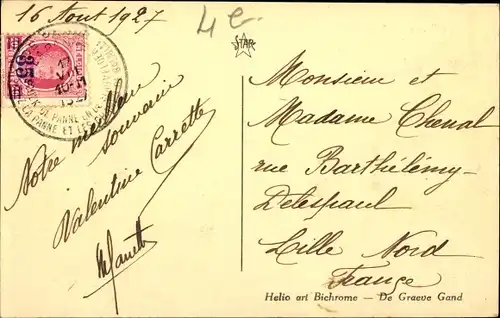 16 Aout 1927
4e
STAR
35
DE PANNE
LA PANNE ET
Notre meilleur
souvenir
Valentine Carrette
Monsieur et
Madame Cheval
rue Barthélémy-
Delespaul
Lille Nord
France
Helio art Bichrome — De Graeve Gand